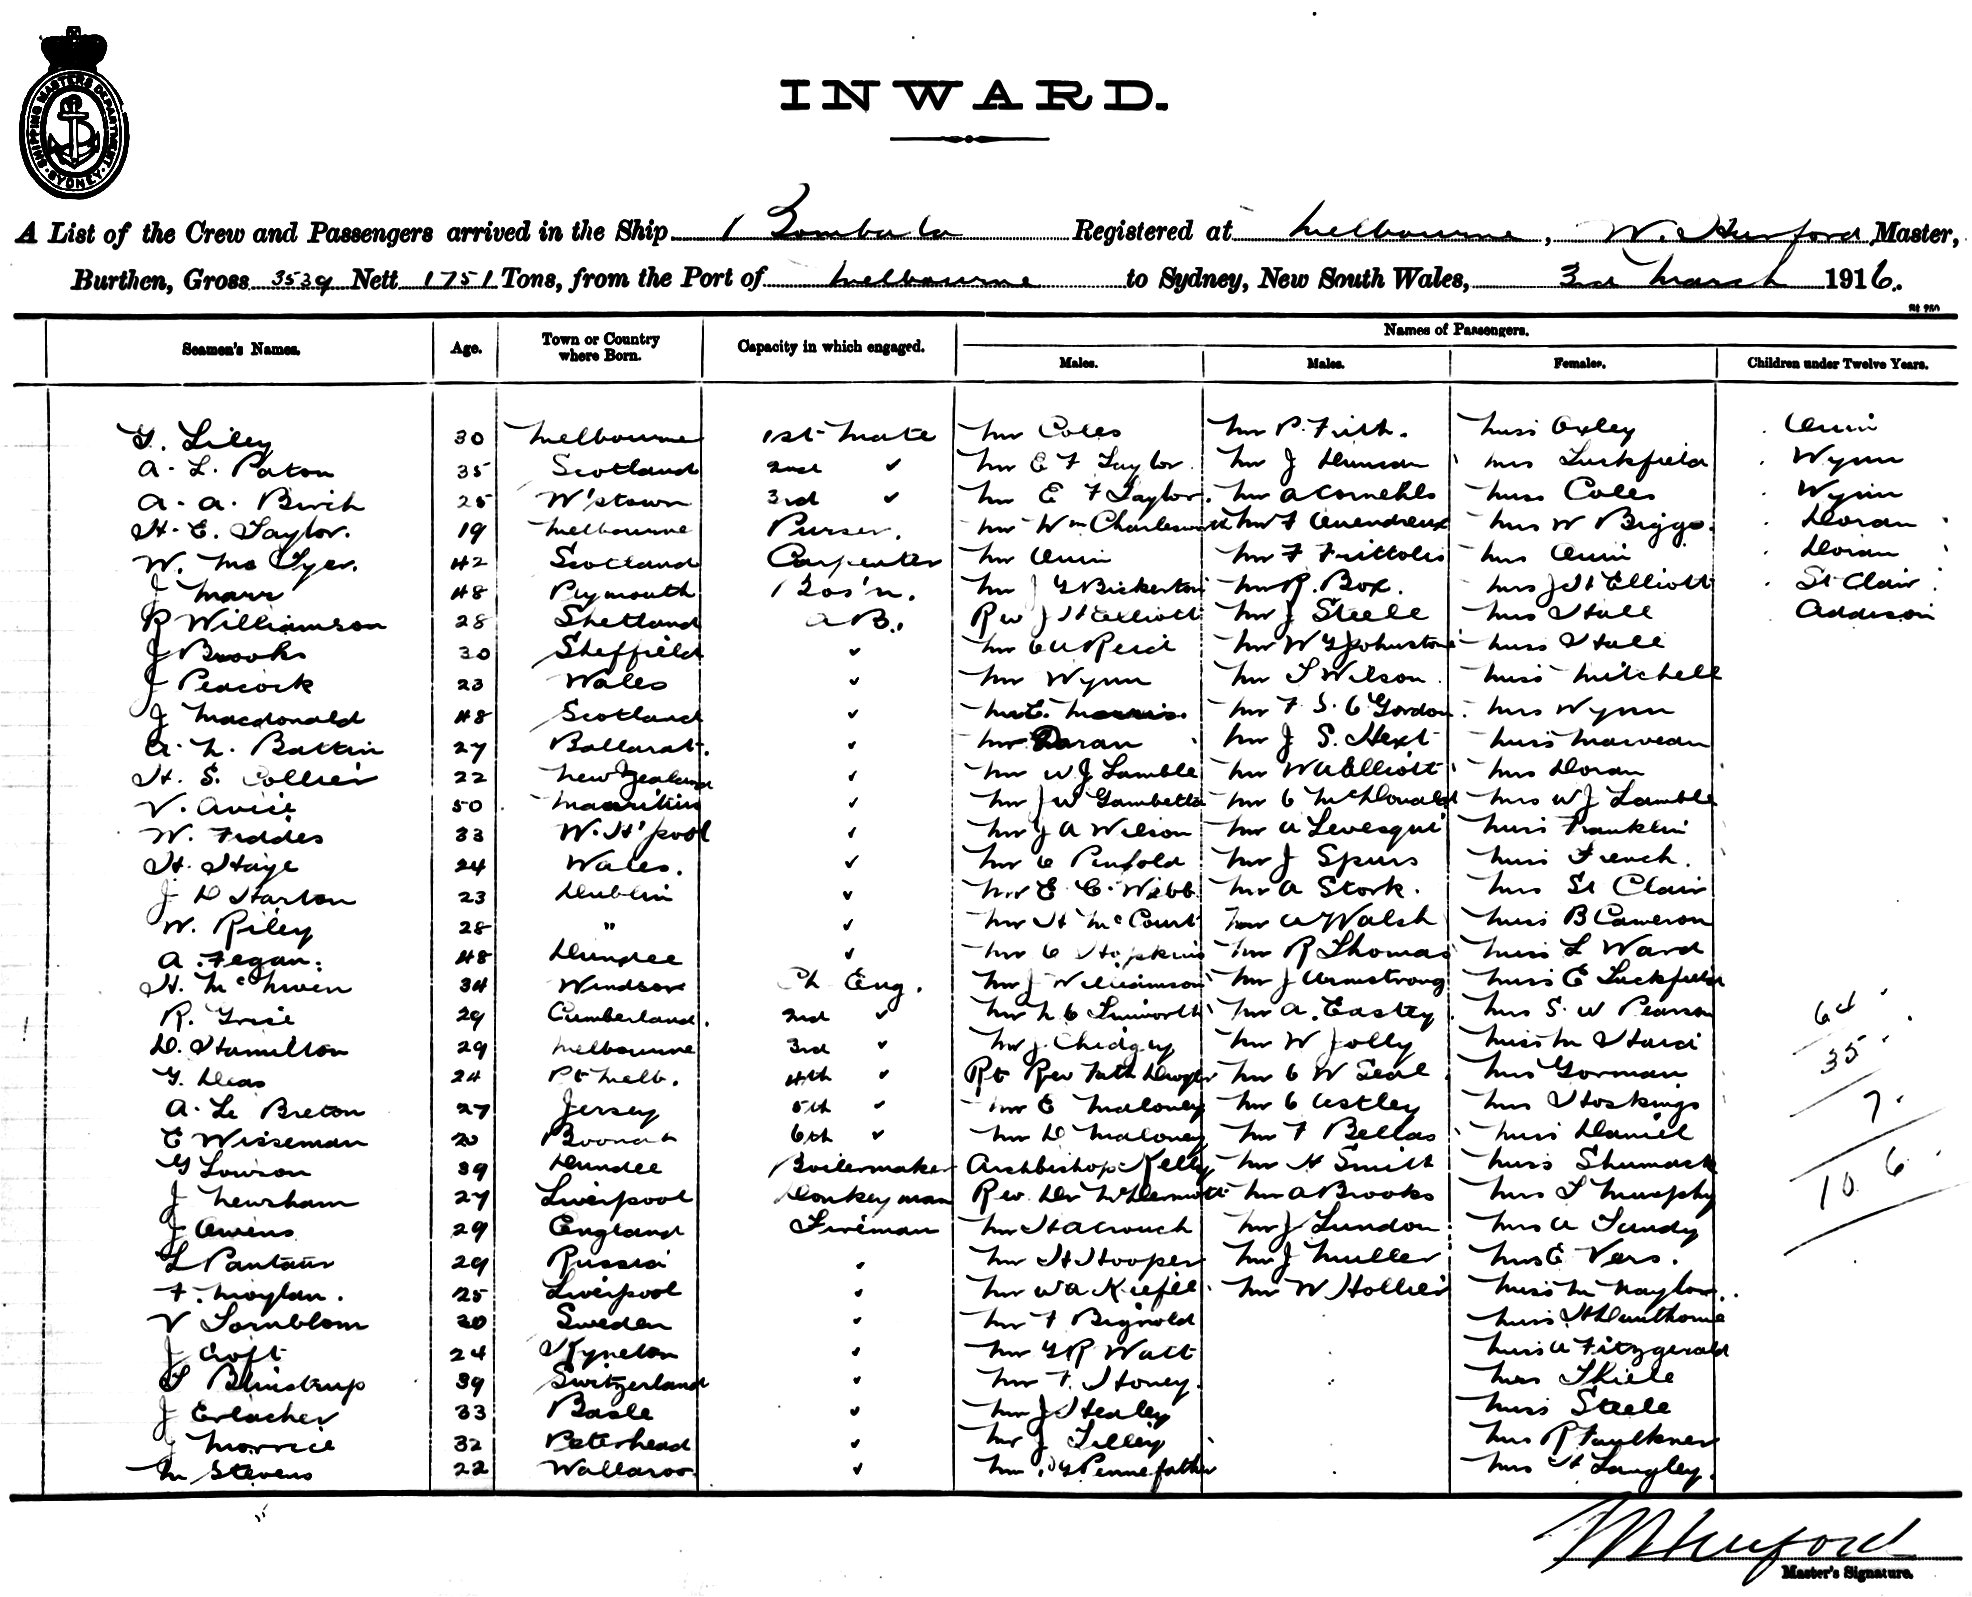 SHIPPING MASTERS DEPARTMENT SYDNEY
INWARD.
A List of the Crew and Passengers arrived in the Ship Bombala Registered at Melbourne, W. Hurford, Master,
Burthen, Gross 3539 Nett 1751 Tons, from the Port of Melbourne to Sydney, New South Wales, 3rd March 1916.
Names of Passengers.
Seamen's Names. Age. Town or Country where Born. Capacity in which engaged. Males. Males. Females. Children under Twelve Years.
G. Liley 30 Melbourne 1st Mate Mr Coles Mr P. Firth. Miss Oxley
A. L. Paton 35 Scotland 2nd ✓ Mr E F Taylor Mr J Duncan Mrs Luckfield Wynn
A. A. Birch 25 W'stown 3rd ✓ Mr E F Taylor Mr A Cornehls Miss Coles Wynn
H. E. Taylor. 19 Melbourne Purser. Mr Wm Charlesworth Mr F Mrs W Biggs. Doran
W. Mc Tyer. 42 Scotland Carpenter Mr Mr F Frittolis Mrs Doran
J Marr 48 Plymouth Bos'n. Mr J G Bickerton Mr R. Box. Mrs J H Elliott St Clair
R Williamson 28 Shetland A B. Rev J H Elliott Mr J Steele Mrs Hall Addison
J Brooks 30 Sheffield ✓ Mr Reid Mr W G Johnstone Miss Hall
J Peacock 23 Wales ✓ Mr Wynn Mr S Wilson Miss Mitchell
J Macdonald 48 Scotland ✓ Mr C. Morris. Mr F. S. C Gordon. Mrs Wynn
A. L. Battin 27 Ballarat. ✓ Mr Doran Mr J S. Hext Miss
H. S. Collier 22 New Zealand ✓ Mr W J Lamble Mr W A Elliott Mrs Doran
V. Avice 50 Mauritius ✓ Mr J W Gambetta Mr C McDonald Mrs W J Lamble
W. Fiddes 33 W. H'pool ✓ Mr J A Wilson Mr A Levesqui Miss Franklin
H. Haye 24 Wales. ✓ Mr C Penfold Mr J Spurs Miss French.
J D Harton 23 Dublin ✓ Mr E. C. Webb Mr A Stork. Mrs St Clair
W. Riley 28 " ✓ Mr H McCourt Mr A Walsh Miss B Cameron
A. Fegan. 48 Dundee ✓ Mr C Hopkins Mr R Thomas Miss L Ward
H. 34 Windsor Ch Eng. Mr J Williamson Mr J Armstrong Miss E Luckfield
R. Grice 29 Cumberland. 2nd ✓ Mr L C Mr A. Eastey Mrs S. W Pearson 64
D. Hamilton 29 Melbourne 3rd ✓ Mr J. Chidgey Mr W Jolly Miss M 35
G. Deas 24 Pt Melb. 4th ✓ Rt Rev Mr C W Seal Mrs Gorman
A. Le Breton 27 Jersey 5th ✓ Mr E Maloney Mr C Astley Mrs Hoskings 7.
E Wiseman 20 6th ✓ Mr D Maloney Mr F Bellas Miss Daniel
G Lowson 39 Dundee Boilermaker Archbishop Kelly Mr H Smith Miss Shumack 106
J Newsham 27 Liverpool Donkeyman Rev. Dr McDermott Mr A Brooks Mrs L Murphy
J Owens 29 England Fireman Mr H A Crouch Mr J Lundon Mrs A Tandy
L 29 Russia ✓ Mr H Hooper Mr J Muller Mrs E Vers.
F. Moylan. 25 Liverpool ✓ Mr W A Mr W Hollier Miss M Naylor.
V Tornblom 30 Sweden ✓ Mr F Bignold Miss
J Croft 24 Kyneton ✓ Mr G R Watt Miss A Fitzgerald
39 Switzerland ✓ Mr F. Honey. Miss Thiele
J Erlacher 33 Basle ✓ Mr J Healey Miss Steele
J Morrice 32 Peterhead ✓ Mr J Lilley Mrs R Faulkner
M Stevens 22 Wallaroo ✓ Mr G Pennefather Mrs H Langley.
W Hurford
Master's Signature.